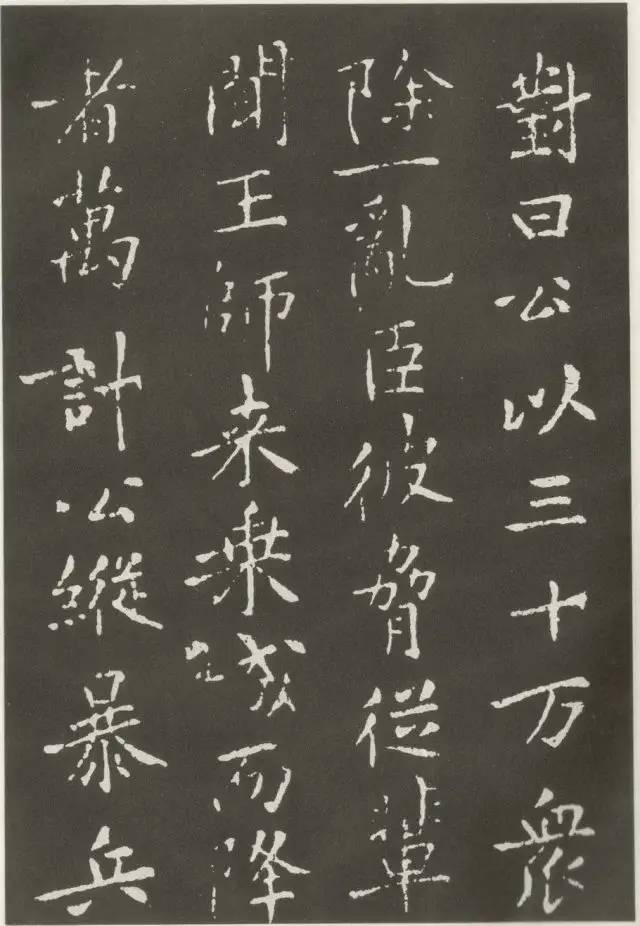 對曰公以三十万衆
除一亂臣彼脅從輩
聞王師来乗城而降
者萬計公縱暴兵